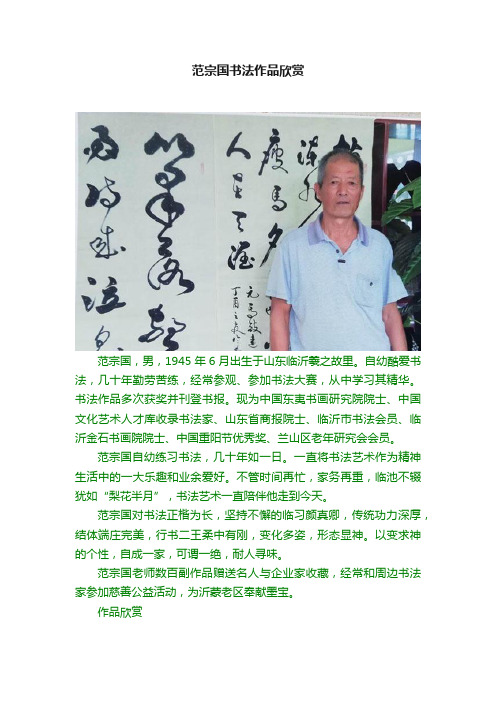 范宗国书法作品欣赏
瘦马夕
人在天涯
元马致远
丁酉
笔落惊
雨诗成泣鬼
范宗国，男，1945 年 6 月出生于山东临沂羲之故里。自幼酷爱书
法，几十年勤劳苦练，经常参观、参加书法大赛，从中学习其精华。
书法作品多次获奖并刊登书报。现为中国东夷书画研究院院士、中国
文化艺术人才库收录书法家、山东省商报院士、临沂市书法会员、临
沂金石书画院院士、中国重阳节优秀奖、兰山区老年研究会会员。
范宗国自幼练习书法，几十年如一日。一直将书法艺术作为精神
生活中的一大乐趣和业余爱好。不管时间再忙，家务再重，临池不辍
犹如“梨花半月”，书法艺术一直陪伴他走到今天。
范宗国对书法正楷为长，坚持不懈的临习颜真卿，传统功力深厚，
结体端庄完美，行书二王柔中有刚，变化多姿，形态显神。以变求神
的个性，自成一家，可谓一绝，耐人寻味。
范宗国老师数百副作品赠送名人与企业家收藏，经常和周边书法
家参加慈善公益活动，为沂蒙老区奉献墨宝。
作品欣赏